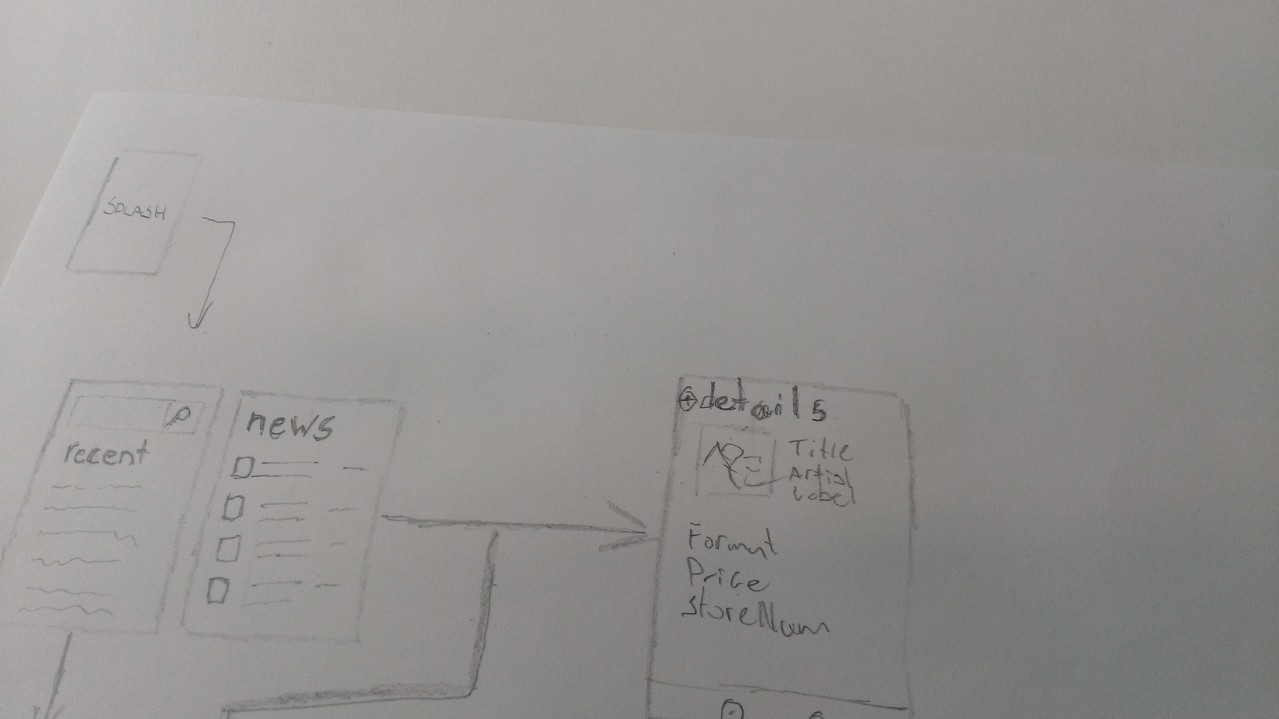 SPLASH
recent
news
details
Title
Artist
Label
Format
Price
StoreNam